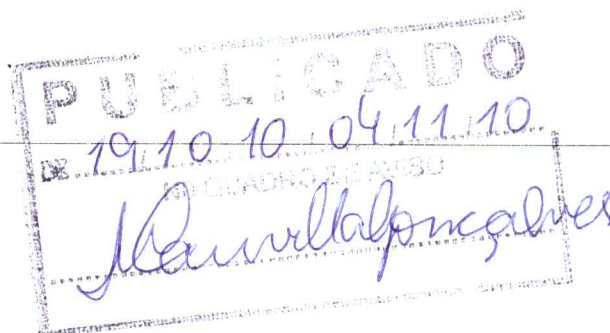 PUBLICADO
DE 19/10/10 . 04/11/10
NO QUADRO DE AVISO